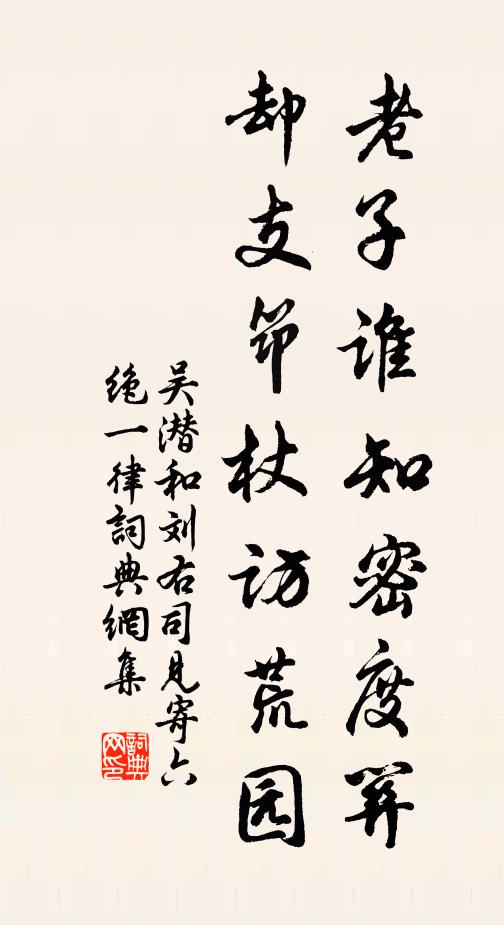 老子谁知密度羿
却支筇杖访荒园
吴潜和刘右司见寄六
绝一律詞典網集
詞典网印